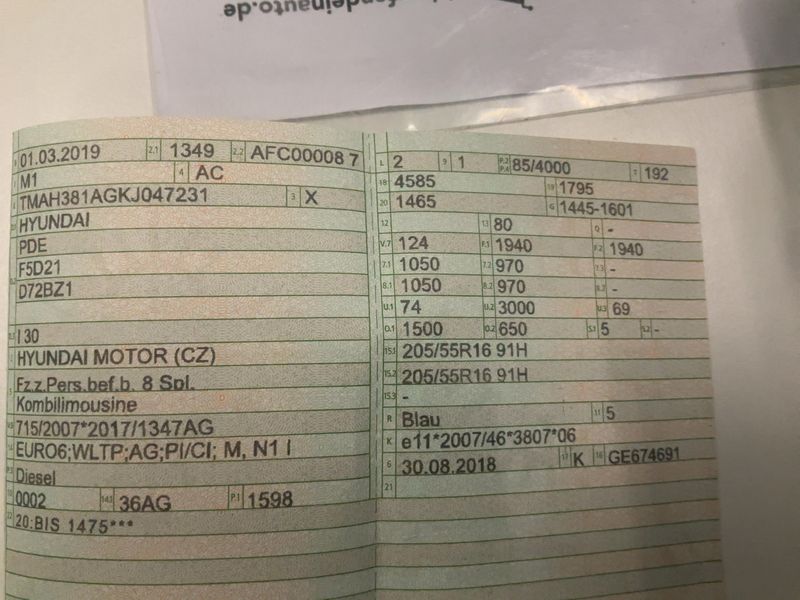 fendeinauto.de
01.03.2019 2.1 1349 2.2 AFC00008 7
M1 4 AC
TMAH381AGKJ047231 3 X
HYUNDAI
PDE
F5D21
D72BZ1
I 30
HYUNDAI MOTOR (CZ)
Fz.z.Pers.bef.b. 8 Spl.
Kombilimousine
715/2007*2017/1347AG
EURO6;WLTP;AG;PI/CI; M, N1 I
P.3 Diesel
10 0002 14.1 36AG P.1 1598
22 20:BIS 1475***
L 2 9 1 P.2 P.4 85/4000 T 192
18 4585 19 1795
20 1465 G 1445-1601
12 13 80 Q -
V.7 124 F.1 1940 F.2 1940
7.1 1050 7.2 970 7.3 -
8.1 1050 8.2 970 8.3 -
U.1 74 U.2 3000 U.3 69
O.1 1500 O.2 650 S.1 5 S.2 -
15.1 205/55R16 91H
15.2 205/55R16 91H
15.3 -
R Blau 11 5
K e11*2007/46*3807*06
6 30.08.2018 17 K 16 GE674691
21